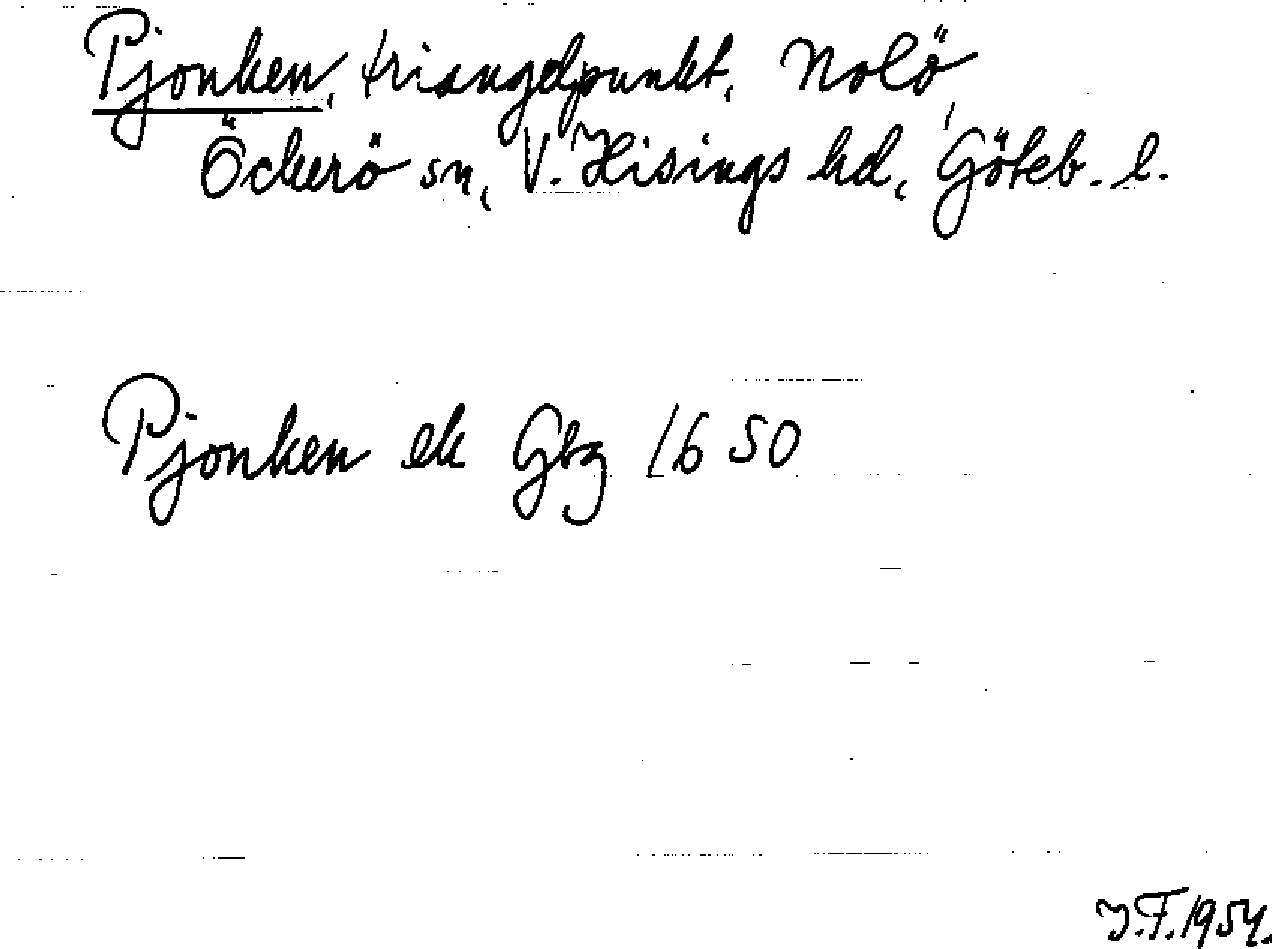 Pjonken, triangelpunkt, Nolö,
Öckerö sn, V. Hisings hd, Göteb. l.
Pjonken ek Gbg 1650
J.F. 1954.